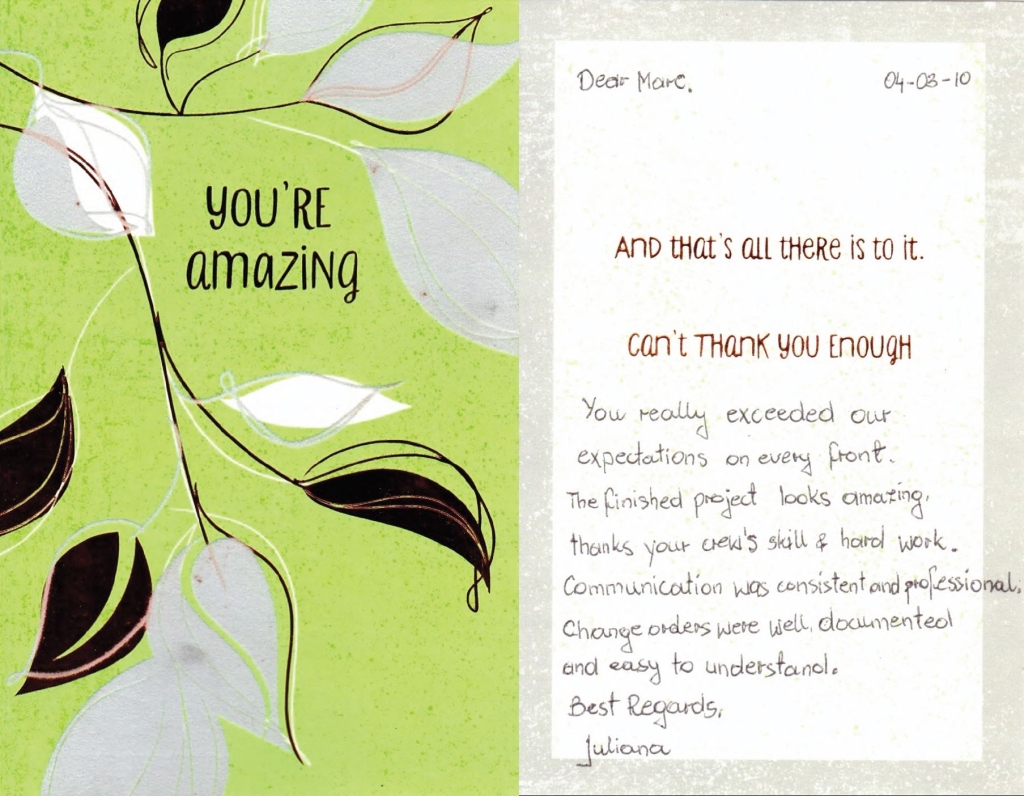 YOU'RE
amazing
Dear Marc. 04-03-10
AND that's all there is to it.
can't THANK YOU ENOUGH
You really exceeded our
expectations on every front.
The finished project looks amazing,
thanks your crew's skill & hard work.
Communication was consistent and professional.
Change orders were well, documented
and easy to understand.
Best Regards,
Juliana